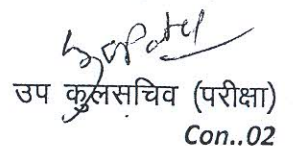 उप कुलसचिव (परीक्षा)
Con..02